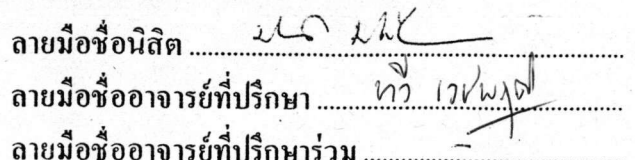 ลายมือชื่อนิสิต
ลายมือชื่ออาจารย์ที่ปรึกษา ทวี เวชพฤติ
ลายมือชื่ออาจารย์ที่ปรึกษาร่วม -